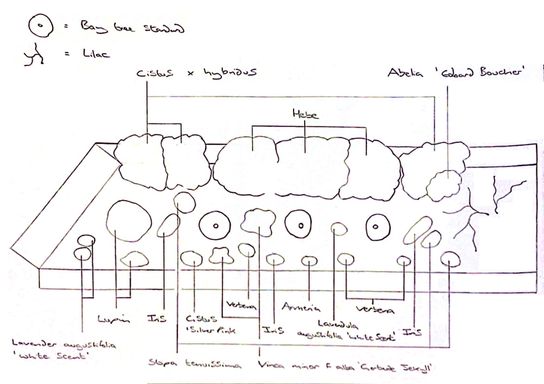 = Bay tree standard
= Lilac
Cistus x hybridus
Abelia 'Edward Goucher'
Hebe
Lupin
Iris
Cistus
'Silver Pink'
Verbena
Iris
Armeria
Lavandula
angustifolia 'White Scent'
Verbena
Iris
Lavender angustifolia
'White Scent'
Stipa tenuissima
Vinca minor F alba 'Gertrude Jekyll'